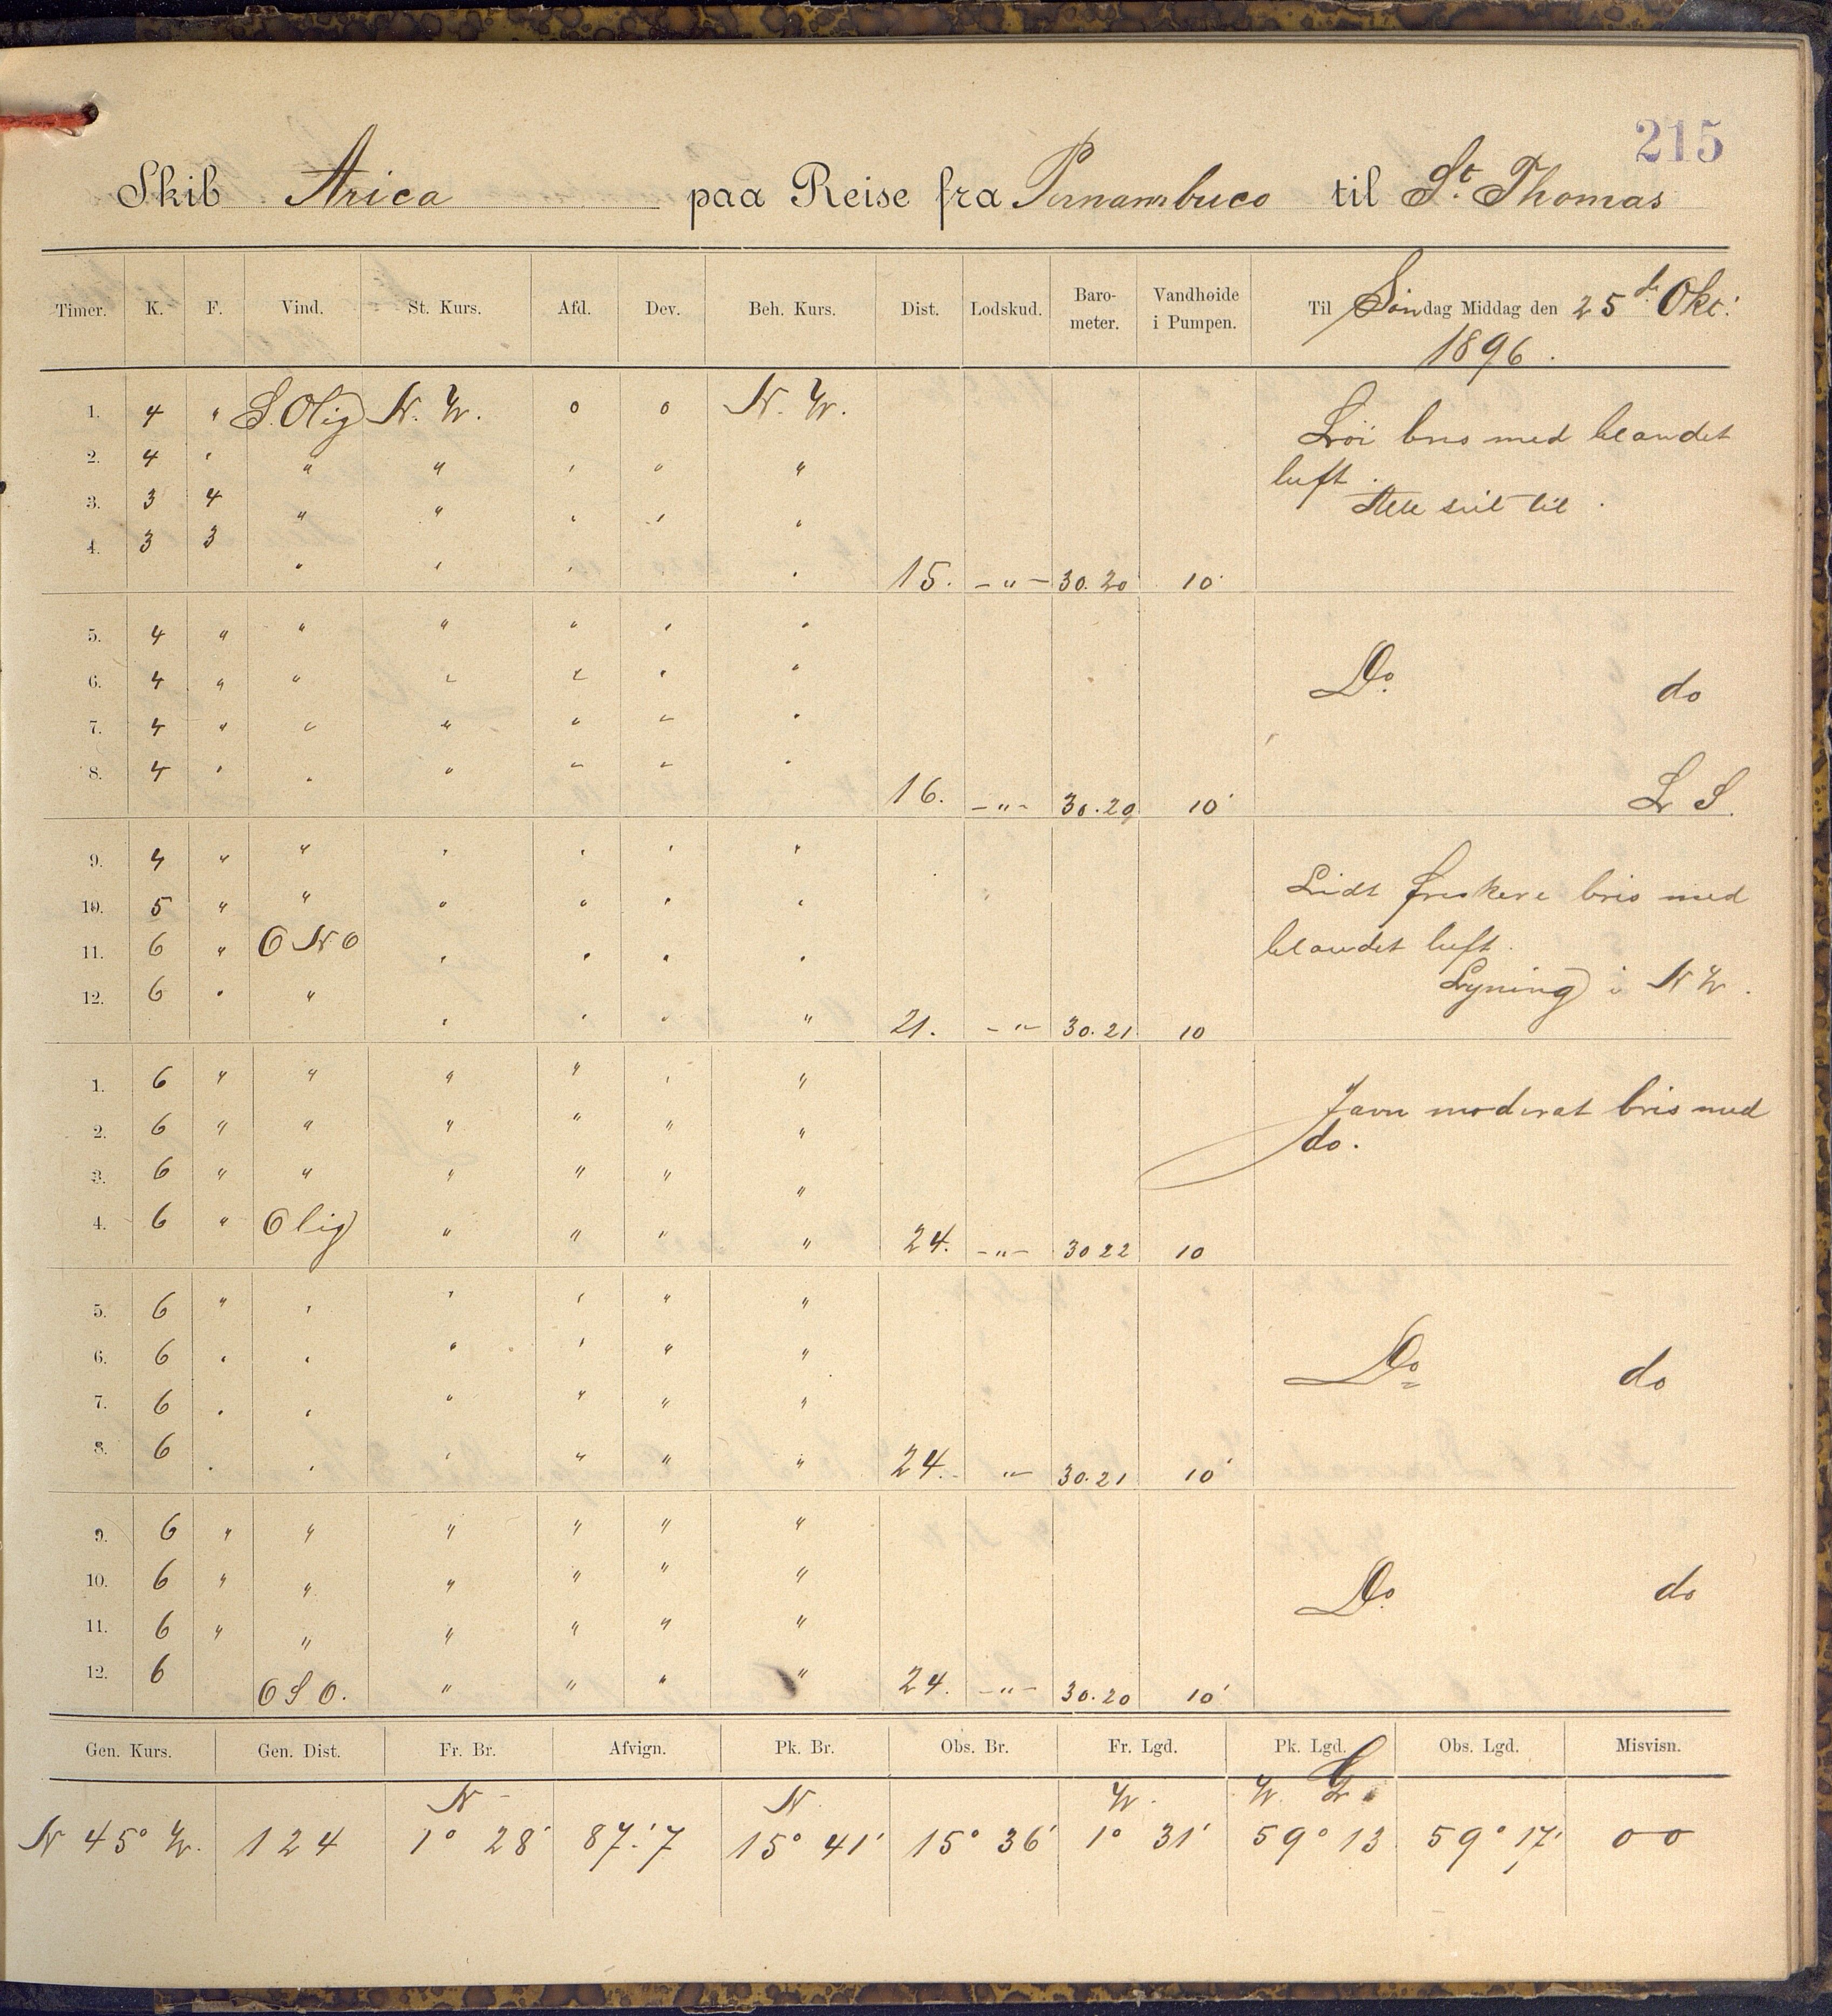 215
Skib Arica paa Reise fra Pernambuco til St. Thomas
Timer. K. F. Vind. St. Kurs. Afd. Dev. Beh. Kurs. Dist. Lodskud. Baro-meter. Vandhøide i Pumpen. Til Søndag Middag den 25de Okt: 1896.
1. 4 " S.Olig N. W. 0 0 N. W. Løi bris med blandet
2. 4 " " " " " " luft.
3. 3 4 " " " " " Alle seil til.
4. 3 3 " " " " " 15. -"- 30.20 10'
5. 4 " " " " " "
6. 4 " " " " " " Do. do
7. 4 " " " " " "
8. 4 " " " " " " 16. -"- 30.20 10' L S.
9. 4 " " " " " " Lidt friskere bris med
10. 5 " " " " " " blandet luft.
11. 6 " O N O " " " "
12. 6 " " " " " " 21. -"- 30.21 10 Lyning i N W.
1. 6 " " " " " " Javn moderat bris med
2. 6 " " " " " " do.
3. 6 " " " " " "
4. 6 " Olig " " " " 24. -"- 30 22 10
5. 6 " " " " " "
6. 6 " " " " " " Do do
7. 6 " " " " " "
8. 6 " " " " " " 24. " 30.21 10'
9. 6 " " " " " "
10. 6 " " " " " " Do. do
11. 6 " " " " " "
12. 6 O S O. " " " " 24. -"- 30.20 10'
Gen. Kurs. Gen. Dist. Fr. Br. Afvign. Pk. Br. Obs. Br. Fr. Lgd. Pk. Lgd. Obs. Lgd. Misvisn.
N N. W. W.
N 45° W. 124 1° 28' 87.'7 15° 41' 15° 36' 1° 31' 59° 13 59° 17' 0 0